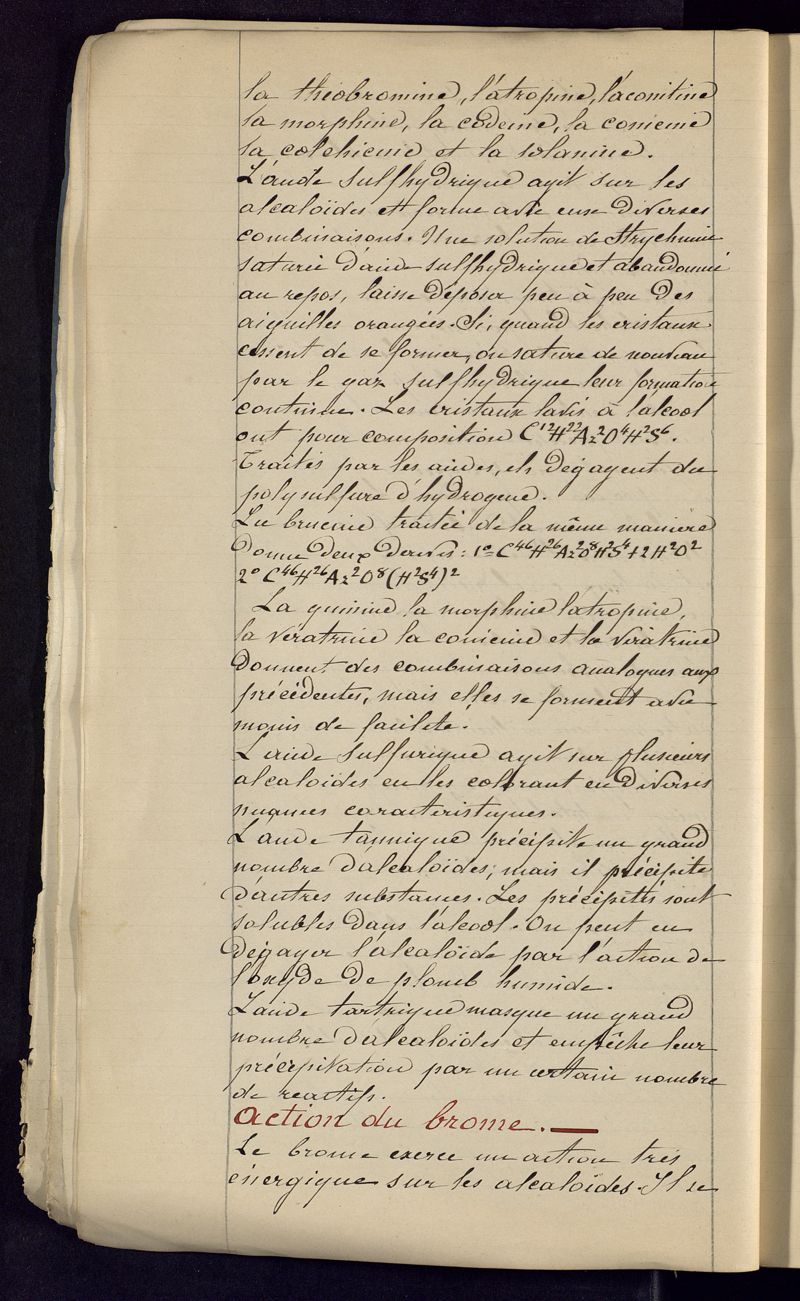 la théobromine, l'atropine, l'aconitine
la morphine, la codeine, la conicine
la colchicine et la solanine.
L'acide sulfhydrique agit sur les
alcaloïdes et forme avec eux diverses
combinaisons. Une solution de Strychnine
saturée d'acide sulfhydrique et abandonnée
au repos, laisse déposer peu à peu des
aiguilles orangées. Si, quand les cristaux
cessent de se former, on sature de nouveau
par le gaz sulfhydrique leur formation
continue. Les cristaux lavés à l'alcool
ont pour composition C¹²H²²Az²O⁴H²S⁶.
Traités par les acides, ils dégagent du
polysulfure d'hydrogene.
La brucine traitée de la même manière
donne deux dérivés : 1º C⁴⁶H²⁶Az²O⁸H²S⁴+2H²O²
2º C⁴⁶H²⁶Az²O⁸(H²S⁴)²
La quinine la morphine l'atropine,
la vératrine la conicine et la vératrine
donnent des combinaisons analogues aux
précédentes, mais elles se forment avec
moins de facilité.
L'acide sulfurique agit sur plusieurs
alcaloïdes en les colorant en diverses
nuances caracteristiques.
L'acide tannique précipite un grand
nombre d'alcaloïdes; mais il précipite
d'autres substances. Les précipités sont
solubles dans l'alcool. On peut en
dégager l'alcaloïde par l'action de
l'oxyde de plomb humide.
L'acide tartrique masque un grand
nombre d'alcaloïdes et empêche leur
précipitation par un certain nombre
de reactifs.
Action du brome. —
Le brome exerce un action très
énergique sur les alcaloïdes. Il se